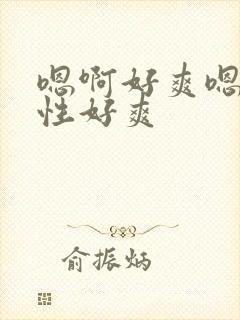 嗯啊好爽嗯
性好爽
俞振炳